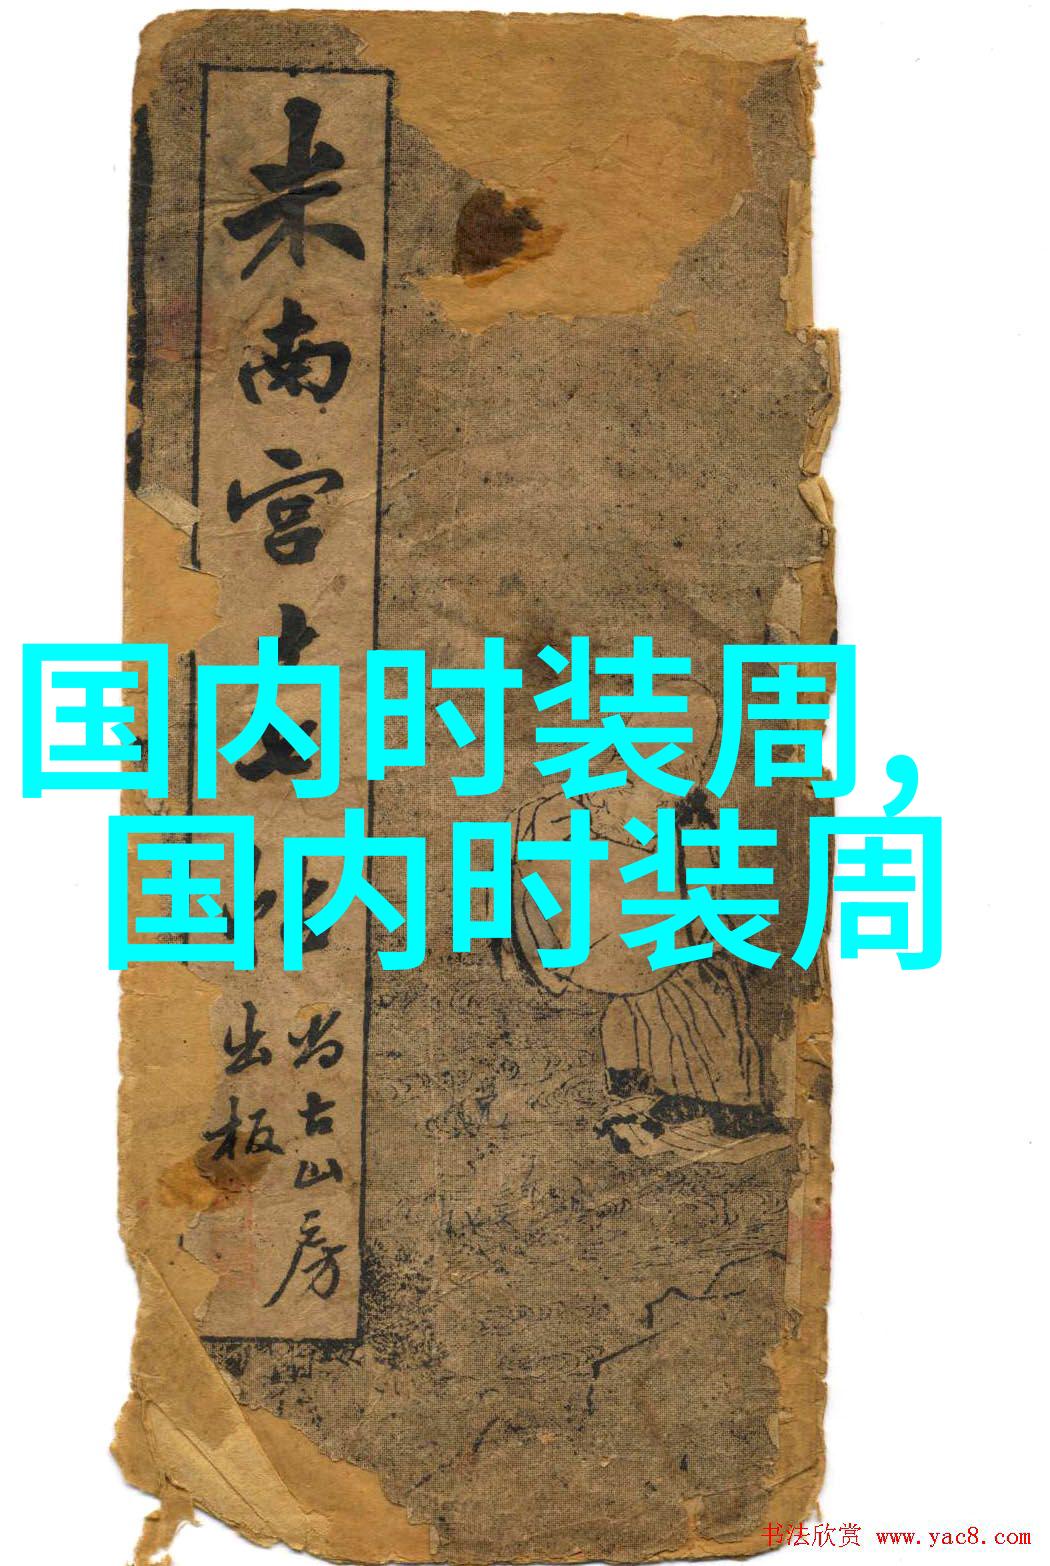 米南宫
国内时装周,
国内时装周
尚古山房
出板
书法欣赏 www.yac8.com